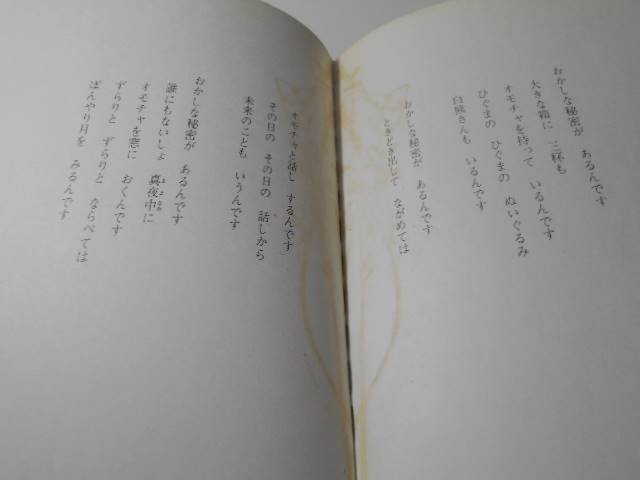 おかしな秘密が　あるんです
大きな箱に　三杯も
オモチャを持って　いるんです
ひぐまの　ひぐまの　ぬいぐるみ
白熊さんも　いるんです
おかしな秘密が　あるんです
ときどき出して　ながめては
オモチャと話し　するんです
その日の　その日の　話しから
未来のことも　いうんです
おかしな秘密が　あるんです
誰にもないしょ　真夜中に
オモチャを窓に　おくんです
ずらりと　ずらりと　ならべては
ぼんやり月を　みるんです